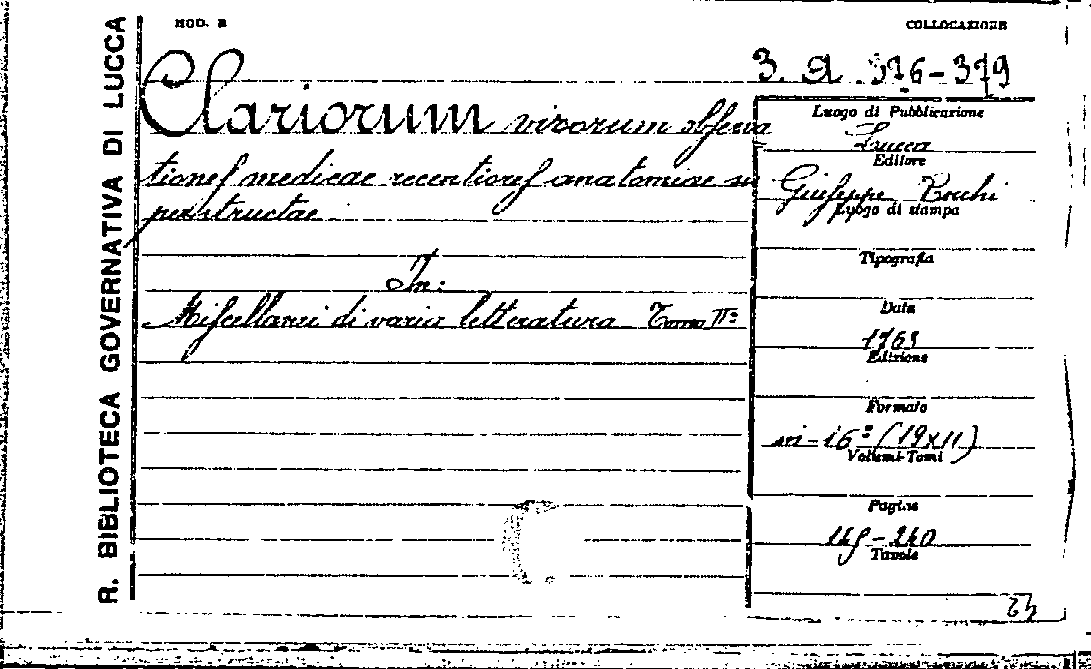 R. BIBLIOTECA GOVERNATIVA DI LUCCA
MOD. B
COLLOCAZIONE
3. A. 376-379
Clariorum virorum observa
tiones medicae recentiores anatomiae su
perstructae
In:
Miscellanei di varia letteratura Tomo II°
Luogo di Pubblicazione
Lucca
Editore
Giuseppe Rocchi
Luogo di stampa
Tipografia
Data
1763
Edizione
Formato
in-16° (19x11)
Volumi-Tomi
Pagine
-240
Tavole